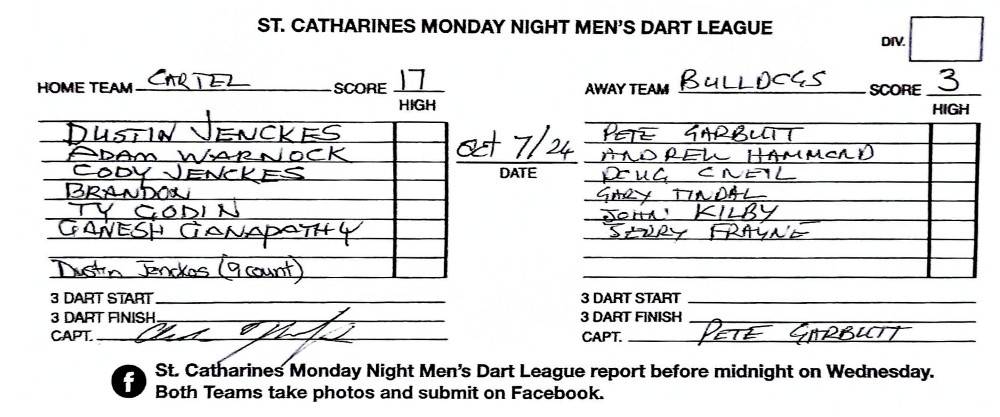 ST. CATHARINES MONDAY NIGHT MEN'S DART LEAGUE
DIV.
HOME TEAM CARTEL SCORE 17
HIGH
AWAY TEAM BULLDOGS SCORE 3
HIGH
DUSTIN JENCKES
ADAM WARNOCK
CODY JENCKES
BRANDON
TY GODIN
GANESH GANAPATHY
Dustin Jenckes (9 count)
Oct 7/24
DATE
PETE GARBUTT
ANDREW HAMMOND
DOUG ONEIL
GARY TINDAL
JOHN KILBY
JERRY FRAYNE
3 DART START
3 DART FINISH
CAPT.
3 DART START
3 DART FINISH
CAPT. PETE GARBUTT
f St. Catharines Monday Night Men's Dart League report before midnight on Wednesday.
Both Teams take photos and submit on Facebook.